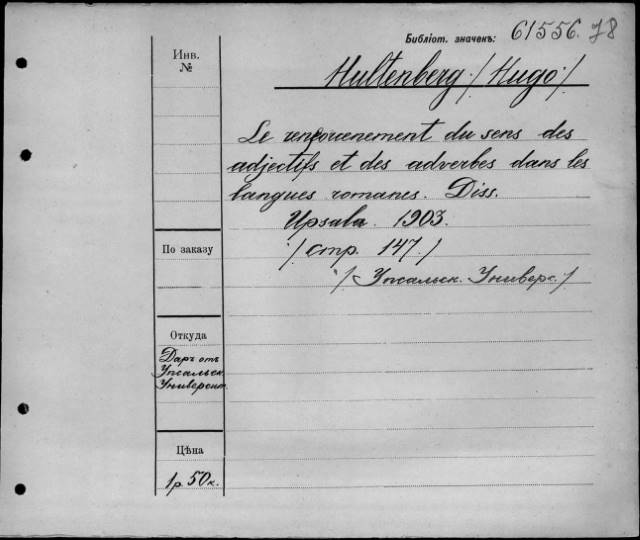 Библіот. значекъ: 61556. 78
Инв.
№
Hultenberg /Hugo/
Le renforcement du sens des
adjectifs et des adverbes dans les
langues romanes. Diss.
Upsala. 1903.
/стр. 147./
/Упсальск. Универс./
По заказу
Откуда
Даръ отъ
Упсальск.
Университ.
Цѣна
1р. 50к.